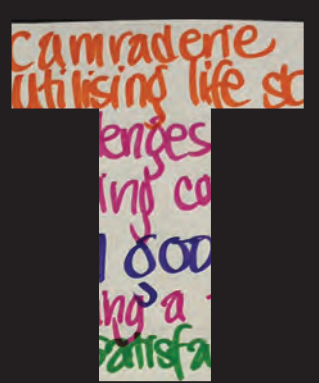 Camraderie
utilising life sc
enges
ing co
goo
ng a
atisfa